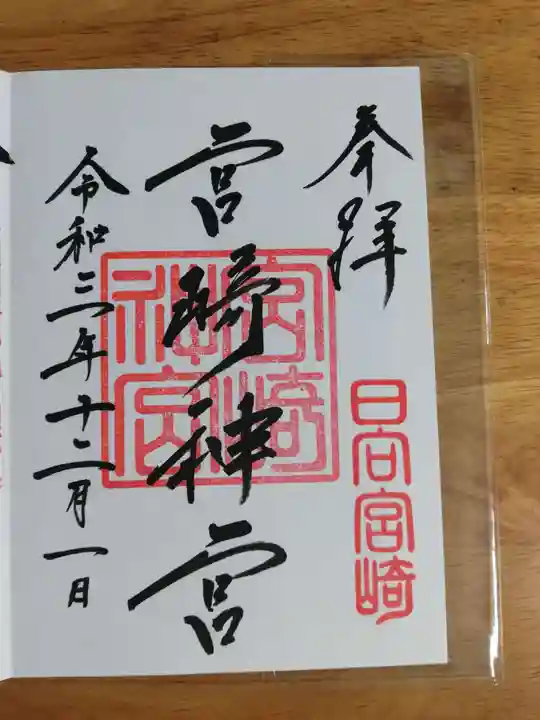 奉拝
日向宮崎
宮崎神宮
宮崎神宮
令和三年十二月一日